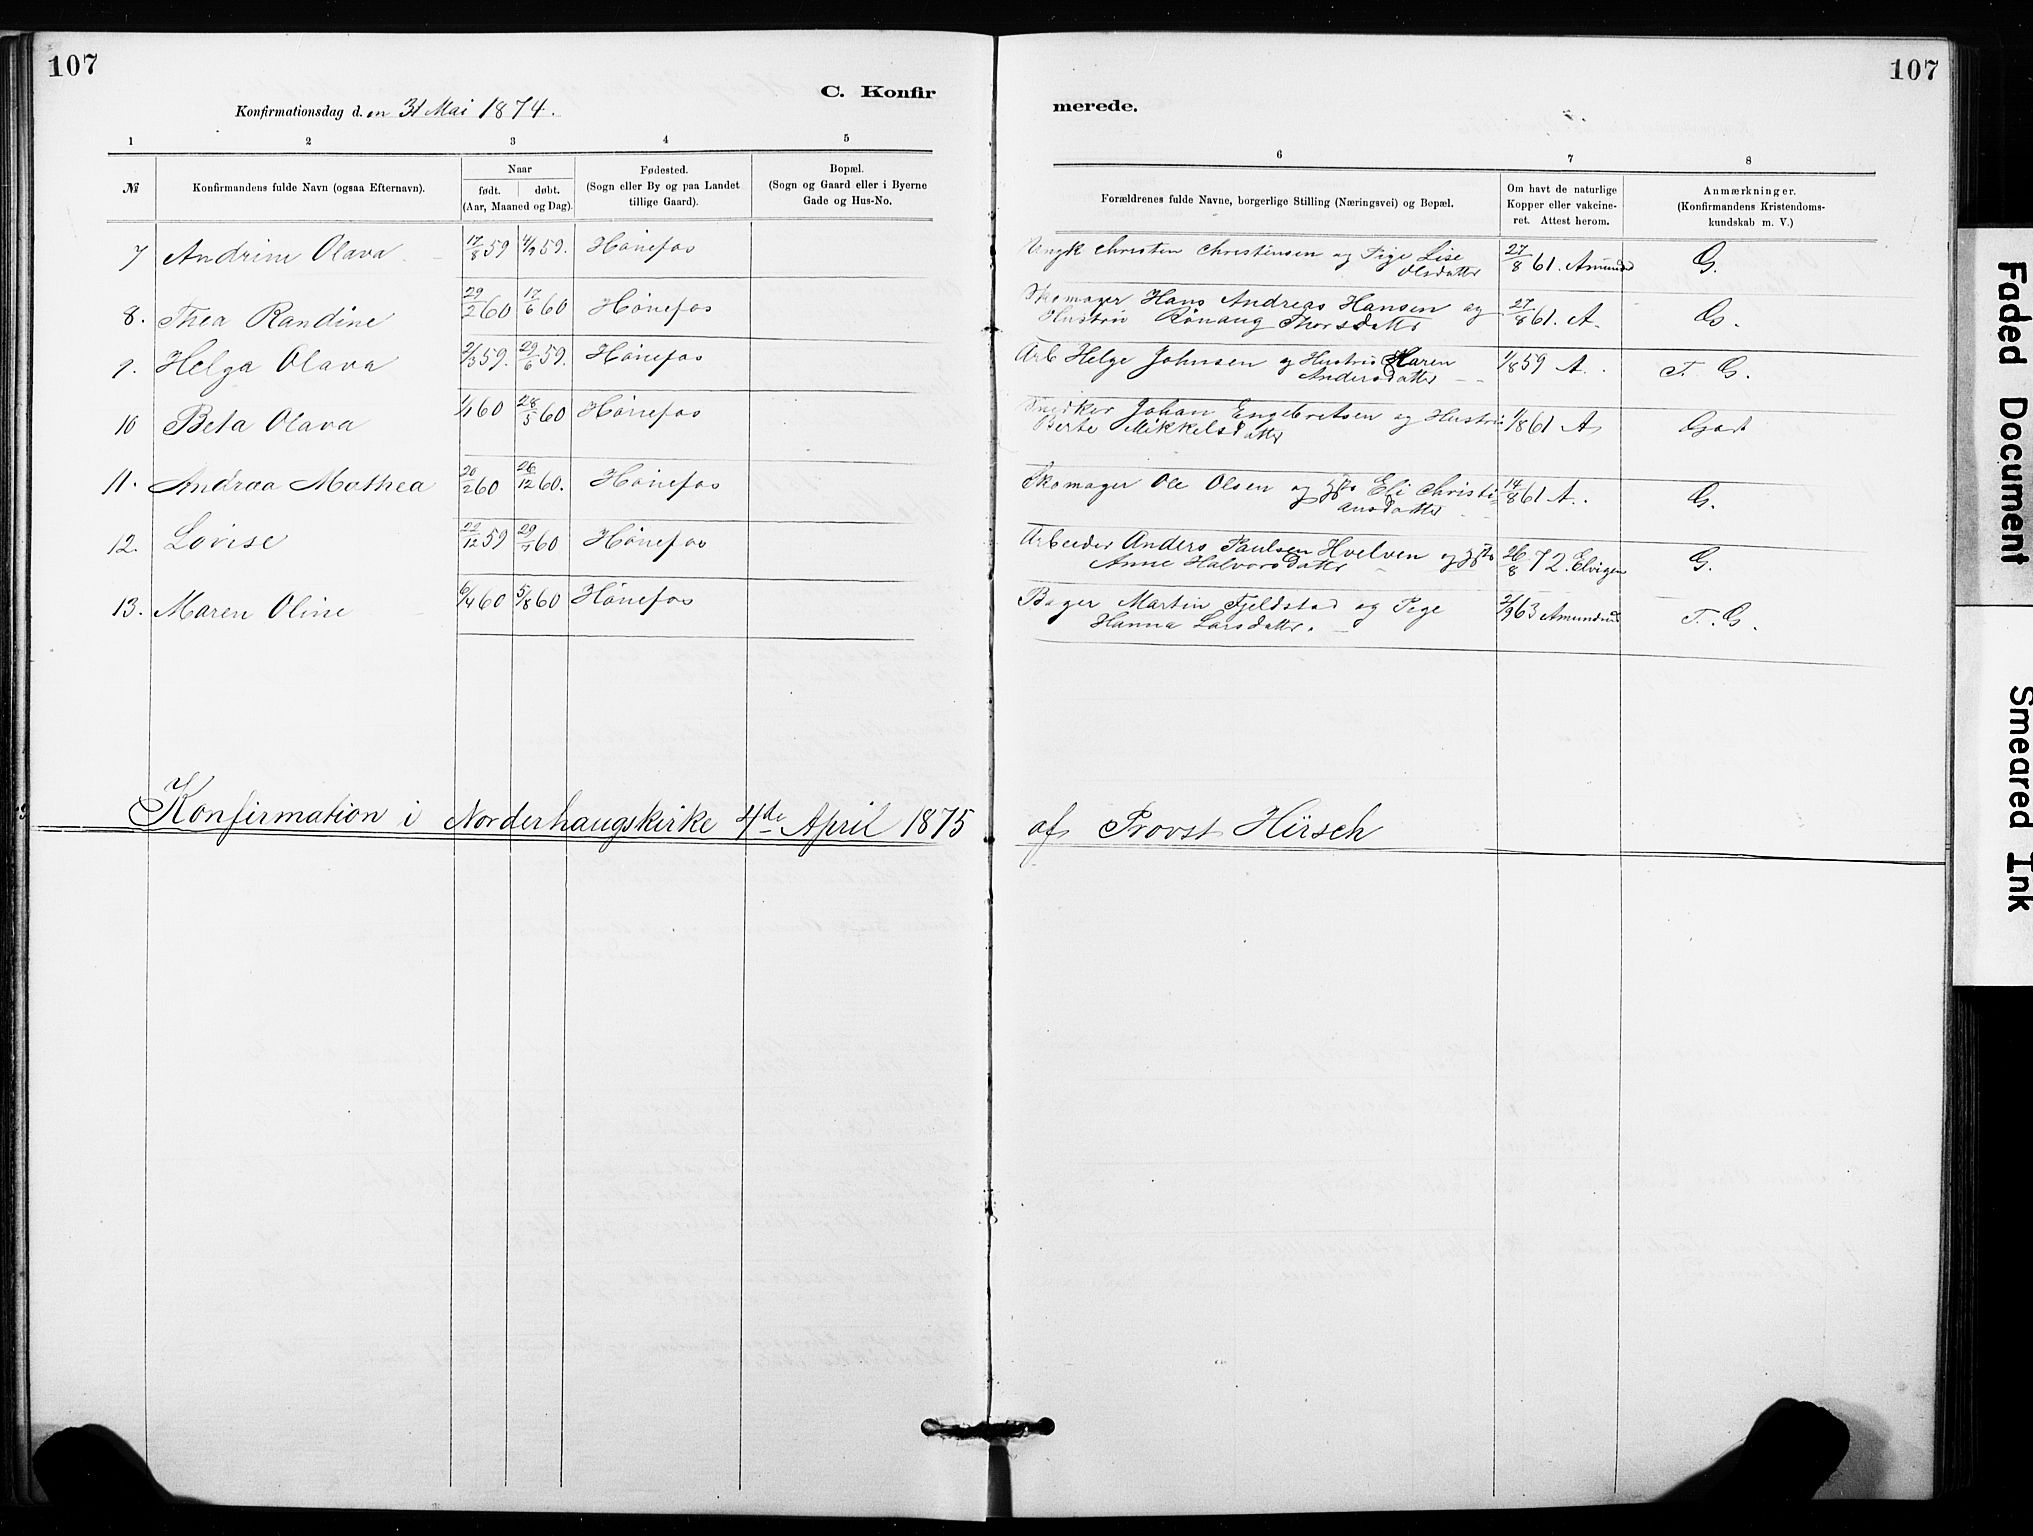 107
107
C. Konfir
merede.
Konfirmationsdag d. en 31 Mai 1874.
1 2 3 4 5 6 7 8
№
Konfirmandens fulde Navn (ogsaa Efternavn).
Naar
født. døbt.
(Aar, Maaned og Dag).
Fødested.
(Sogn eller By og paa Landet
tillige Gaard).
Bopæl.
(Sogn og Gaard eller i Byerne
Gade og Hus-No.
Forældrenes fulde Navne, borgerlige Stilling (Næringsvei) og Bopæl.
Om havt de naturlige
Kopper eller vakcine-
ret. Attest herom.
Anmærkninger.
(Konfirmandens Kristendoms-
kundskab m. V.)
7 Andrine Olava 17/8 59 4/9 59. Hønefos Ungk Christen Christensen og Pige Lise 27/8 61. Amunds G.
Olsdatter
8. Thea Randine 29/2 60 17/6 60 Hønefos Skomager Hans Andreas Hansen og 27/8 61. A. G.
Hustru Rønaug Thorsdatter
9. Helga Olava 2/3 59. 29/6 59. Hønefos Arb Helge Johnsen og Hustru Karen 1/8 59 A. T. G.
Andersdatter
10 Beta Olava 1/1 60 28/5 60 Hønefos Snedker Johan Engebretsen og Hustru 1/8 61 A God
Berte Mikkelsdatter
11. Andrea Mathea 20/2 60 26/12 60. Hønefos Skomager Ole Olsen og Eli Christi- 14/8 61 A. G.
ansdatter
12. Lovise 22/12 59 29/1 60 Hønefos Arbeider Anders Paulsen Hvelven og 26/8 72. Elvigen G.
Anne Halvorsdatter
13. Maren Oline 6/4 60 5/8 60 Hønefos Bager Martin Fjeldstad og Pige 2/9 63 Amundsd T. G.
Hanna Larsdatter.
Konfirmation i Norderhaugskirke 4de April 1875 af Provst Hirsch
Faded Document
Smeared Ink